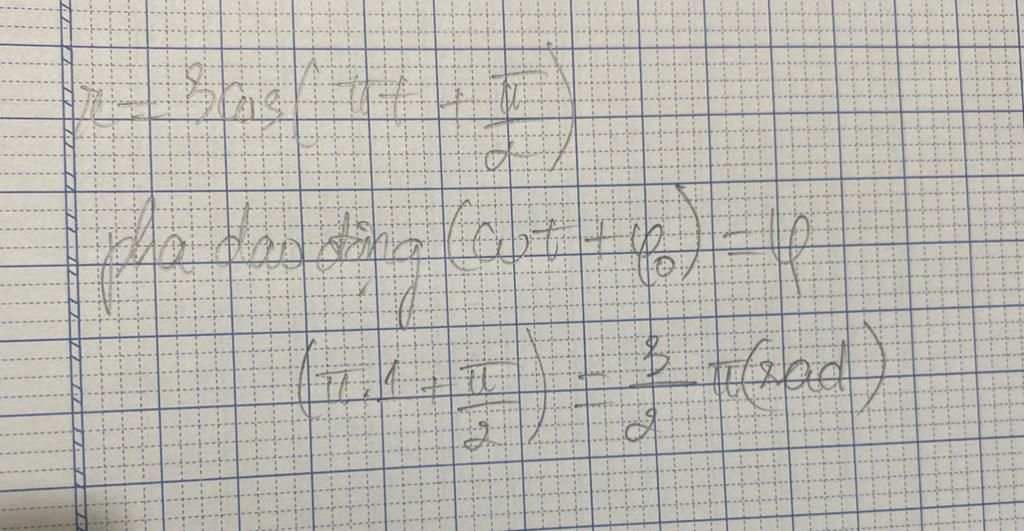 x = 3cos(πt + π/2)
pha dao động (ωt + φ₀) = φ
(π.1 + π/2) = 3/2 π(rad)